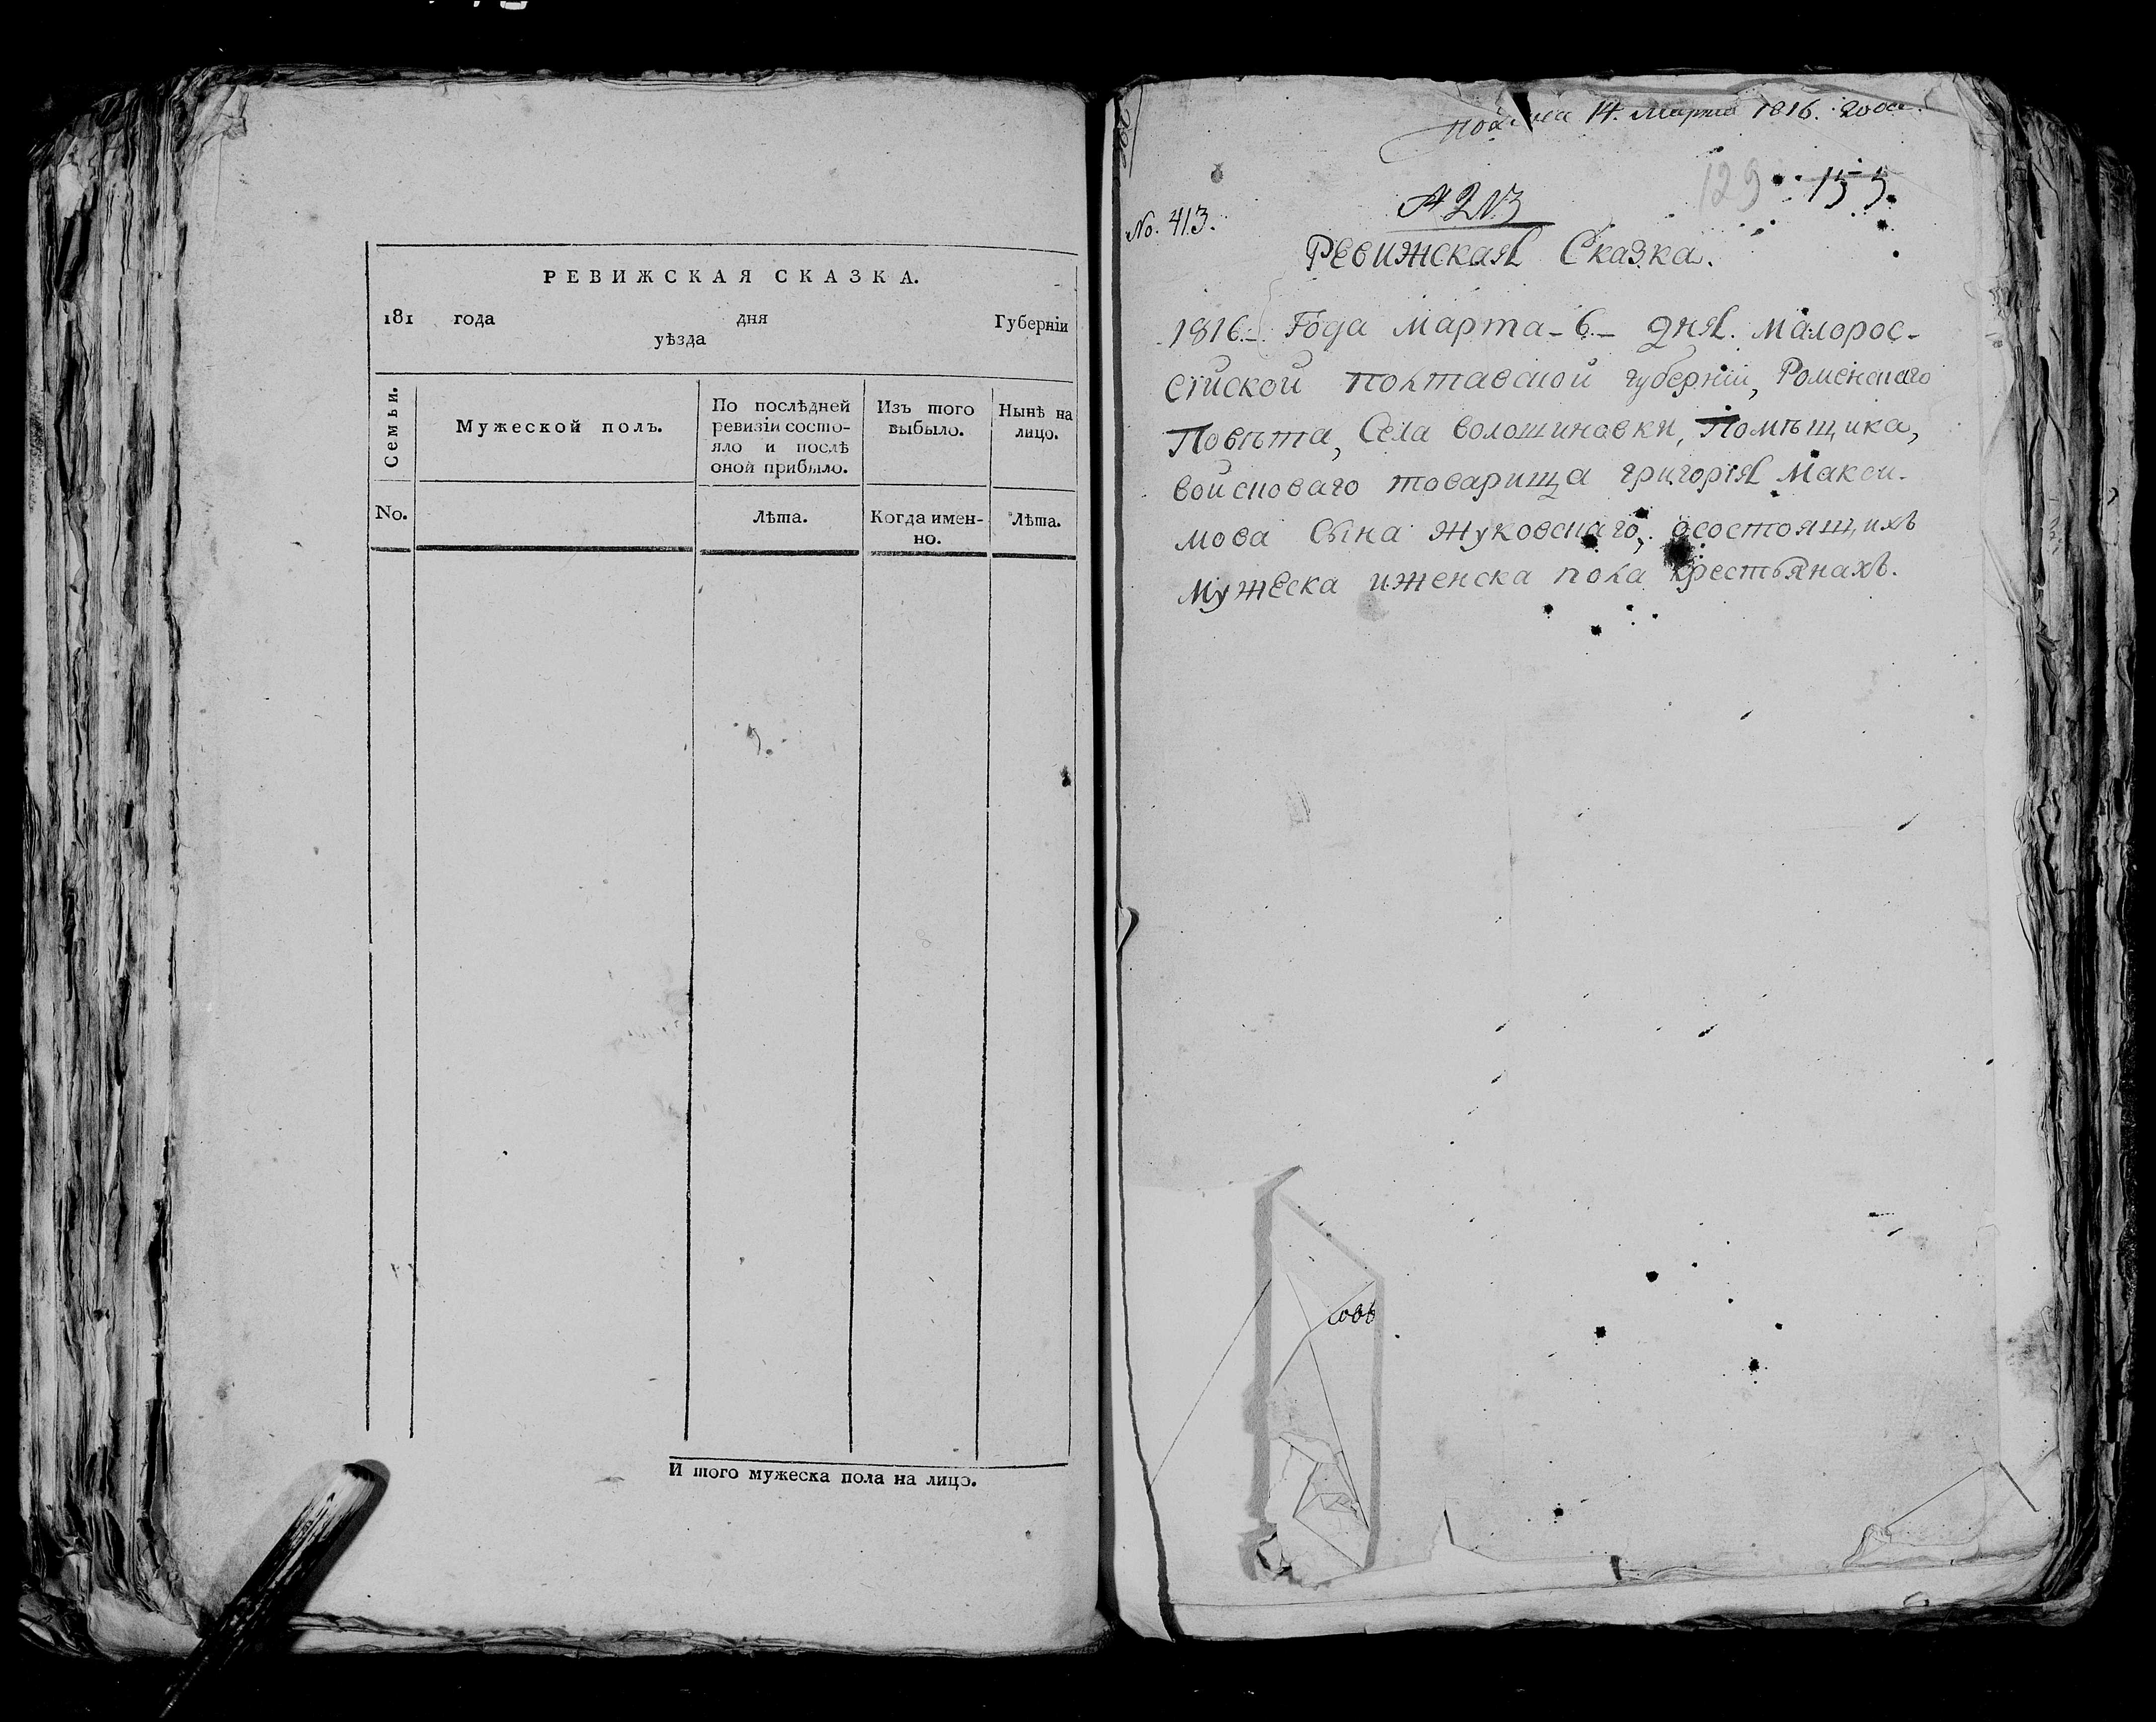 РЕВИЖСКАЯ СКАЗКА.
181 года дня Губерніи
уѣзда
Семьи.
Мужеской полъ.
По послѣдней
ревизіи состо-
яло и послѣ
оной прибыло.
Изъ того
выбыло.
Нынѣ на
лицо.
No.
Лѣта.
Когда имен-
но.
Лѣта.
И того мужеска пола на лицо.
14. Марта 1816. года.
129 155.
No. 413.
Ревижская Сказка.
1816. Года Марта - 6. - дня. Малорос-
сійской Полтавской губерніи, Роменскаго
Повѣта, Села волошиновки, Помѣщика,
войсковаго товарища григорія Макси-
мова Сына Жуковскаго, осостоящихъ
Мужеска иженска пола крестьянахъ.